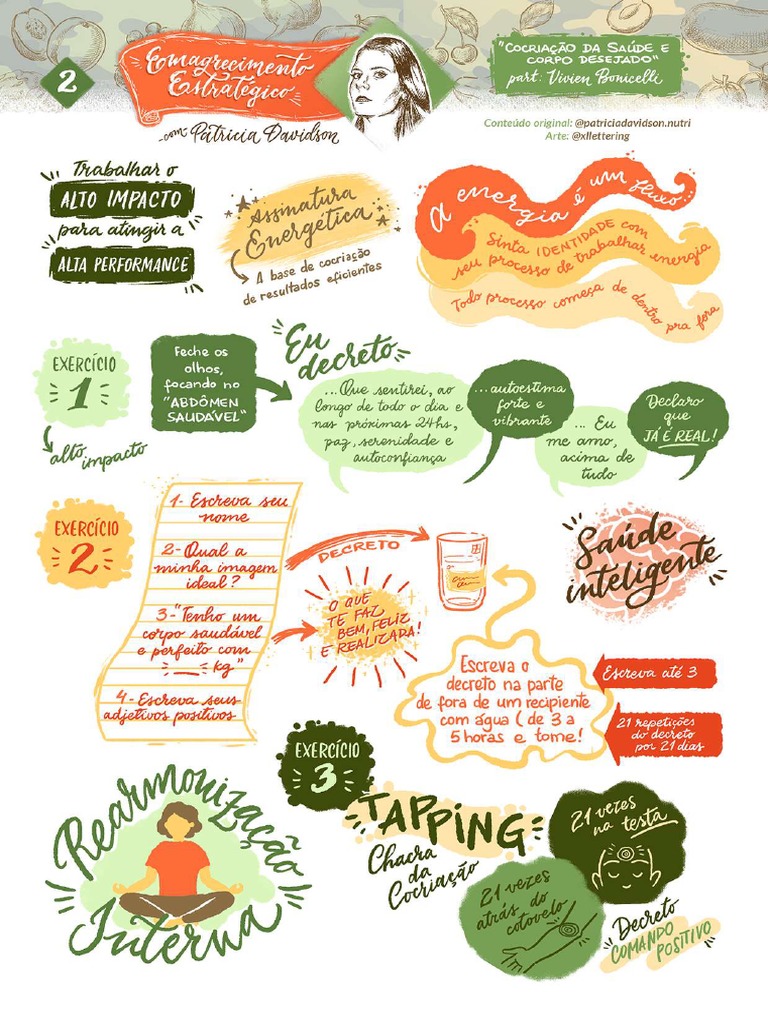 2
Emagrecimento
Estratégico
-com Patricia Davidson
"COCRIAÇÃO DA SAÚDE E
CORPO DESEJADO"
part: Vivien Bonicelli
Conteúdo original: @patriciadavidson.nutri
Arte: @xllettering
Trabalhar o
ALTO IMPACTO
para atingir a
ALTA PERFORMANCE
Assinatura
Energética
A base de cocriação
de resultados eficientes
A energia é um fluxo...
Sinta IDENTIDADE com
seu processo de trabalhar energia
Todo processo começa de dentro pra fora
EXERCÍCIO
1
alto impacto
Feche os
olhos,
focando no
"ABDÔMEN
SAUDÁVEL"
Eu
decreto
...Que sentirei, ao
longo de todo o dia e
nas próximas 24hs,
paz, serenidade e
autoconfiança
...autoestima
forte e
vibrante
... Eu
me amo,
acima de
tudo
Declaro
que
JÁ É REAL!
EXERCÍCIO
2
1- Escreva seu
nome
2- Qual a
minha imagem
ideal?
3-"Tenho um
corpo saudável
e perfeito com
__ __ kg"
4- Escreva seus
adjetivos positivos
DECRETO
O QUE
TE FAZ
BEM, FELIZ
E REALIZADA!
Saúde
inteligente
Escreva o
decreto na parte
de fora de um recipiente
com água ( de 3 a
5 horas e tome!
Escreva até 3
21 repetições
do decreto
por 21 dias
EXERCÍCIO
3
Rearmonização
Interna
TAPPING
Chacra
da
Cocriação
21 vezes
na testa
21 vezes
atrás do
cotovelo
Decreto
COMANDO
POSITIVO